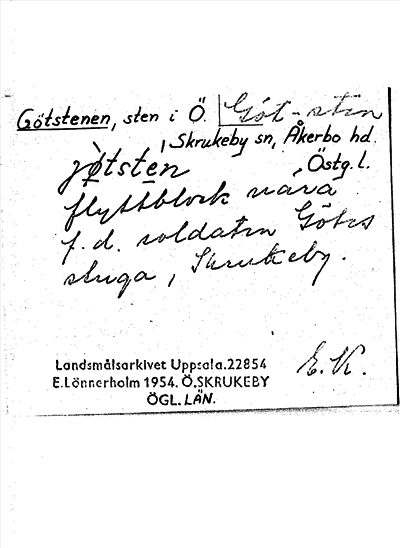 Götstenen, sten i Ö. Göt-sten
Skrukeby sn, Åkerbo hd.
, Östg. l.
flyttblock nära
f.d. soldaten Göts
stuga, Skrukeby.
E.K.
Landsmålsarkivet Uppsala.22854
E.Lönnerholm 1954. Ö.SKRUKEBY
ÖGL. LÄN.